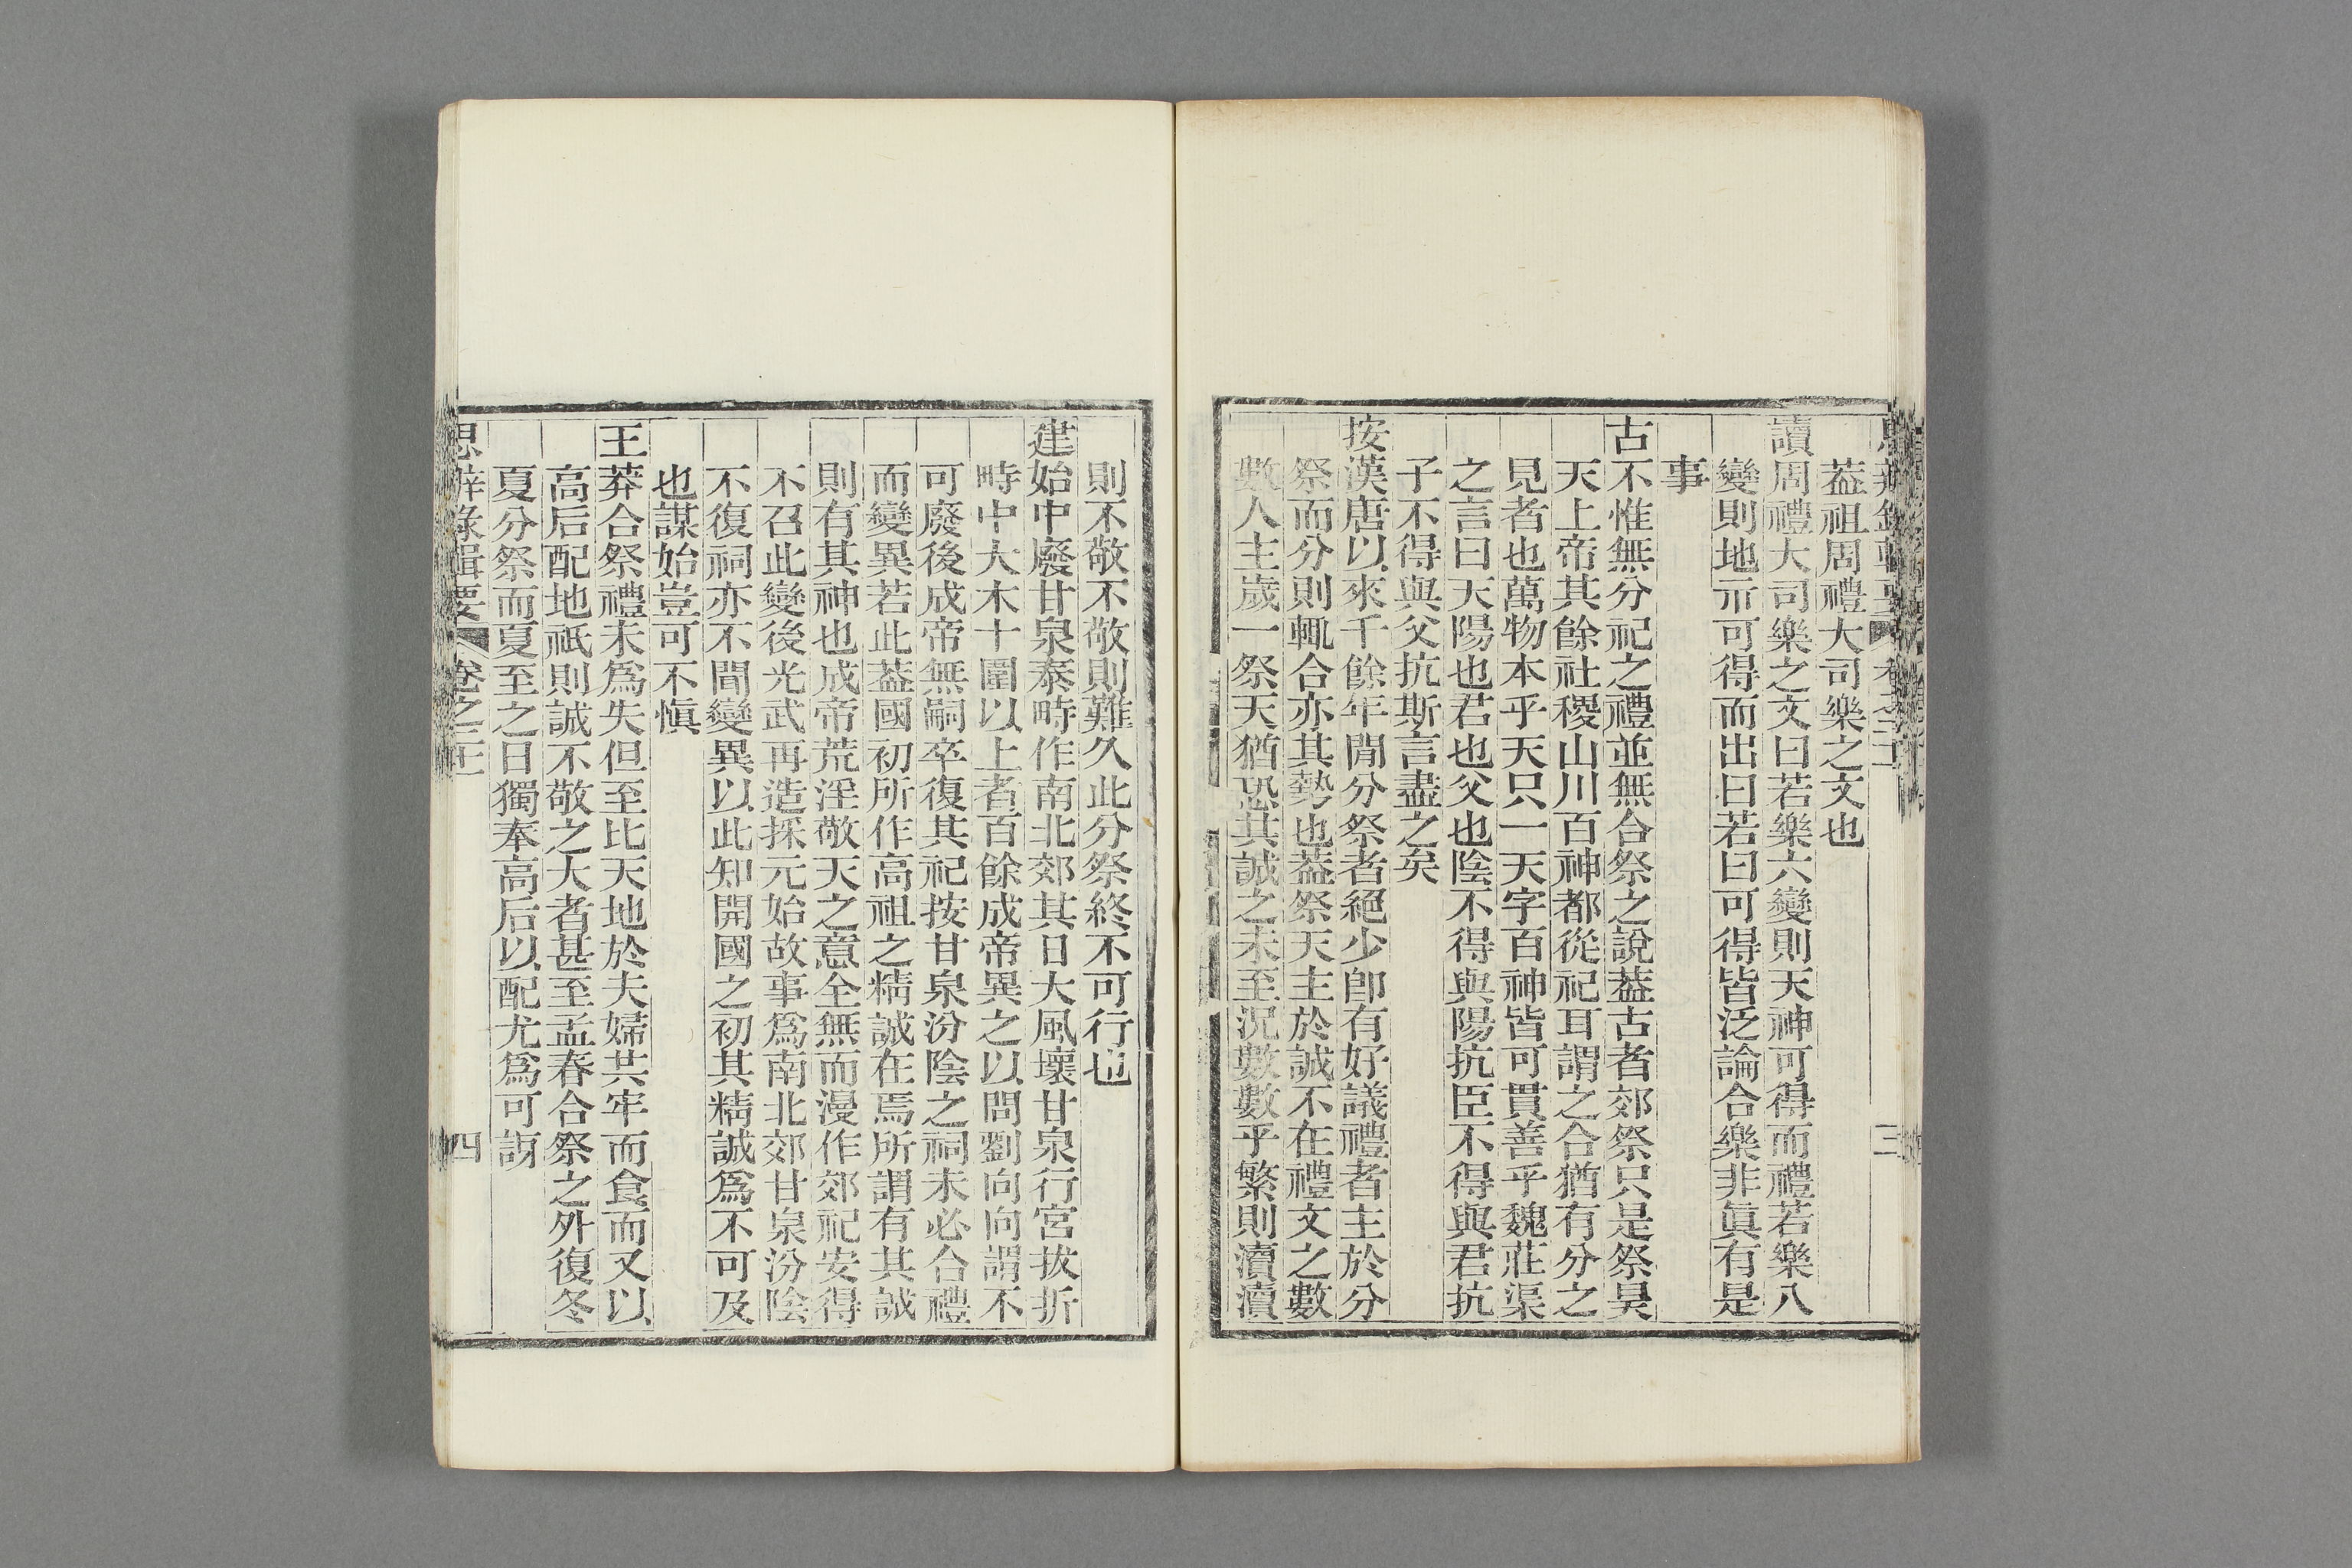 蓋祖周禮大司樂之文也
讀周禮大司樂之文曰若樂六變則天神可得而禮若樂八
變則地示可得而出曰若曰可得皆泛論合樂非眞有是
事
古不惟無分祀之禮並無合祭之說蓋古者郊祭只是祭昊
天上帝其餘社稷山川百神都從祀耳謂之合猶有分之
見者也萬物本乎天只一天字百神皆可貫善乎魏莊渠
之言曰天陽也君也父也陰不得與陽抗臣不得與君抗
子不得與父抗斯言盡之矣
按漢唐以來千餘年閒分祭者絕少卽有好議禮者主於分
祭而分則輒合亦其勢也蓋祭天主於誠不在禮文之數
數人主歲一祭天猶恐其誠之未至況數數乎繁則瀆瀆
則不敬不敬則難久此分祭終不可行也
建始中廢甘泉泰畤作南北郊其日大風壞甘泉行宮拔折
畤中大木十圍以上者百餘成帝異之以問劉向向謂不
可廢後成帝無嗣卒復其祀按甘泉汾陰之祠未必合禮
而變異若此蓋國初所作高祖之精誠在焉所謂有其誠
則有其神也成帝荒淫敬天之意全無而漫作郊祀安得
不召此變後光武再造採元始故事爲南北郊甘泉汾陰
不復祠亦不聞變異以此知開國之初其精誠爲不可及
也謀始豈可不愼
王莽合祭禮未爲失但至比天地於夫婦共牢而食而又以
高后配地祇則誠不敬之大者甚至孟春合祭之外復冬
夏分祭而夏至之日獨奉高后以配尤爲可謗
思辨錄輯要 卷之二十一 四